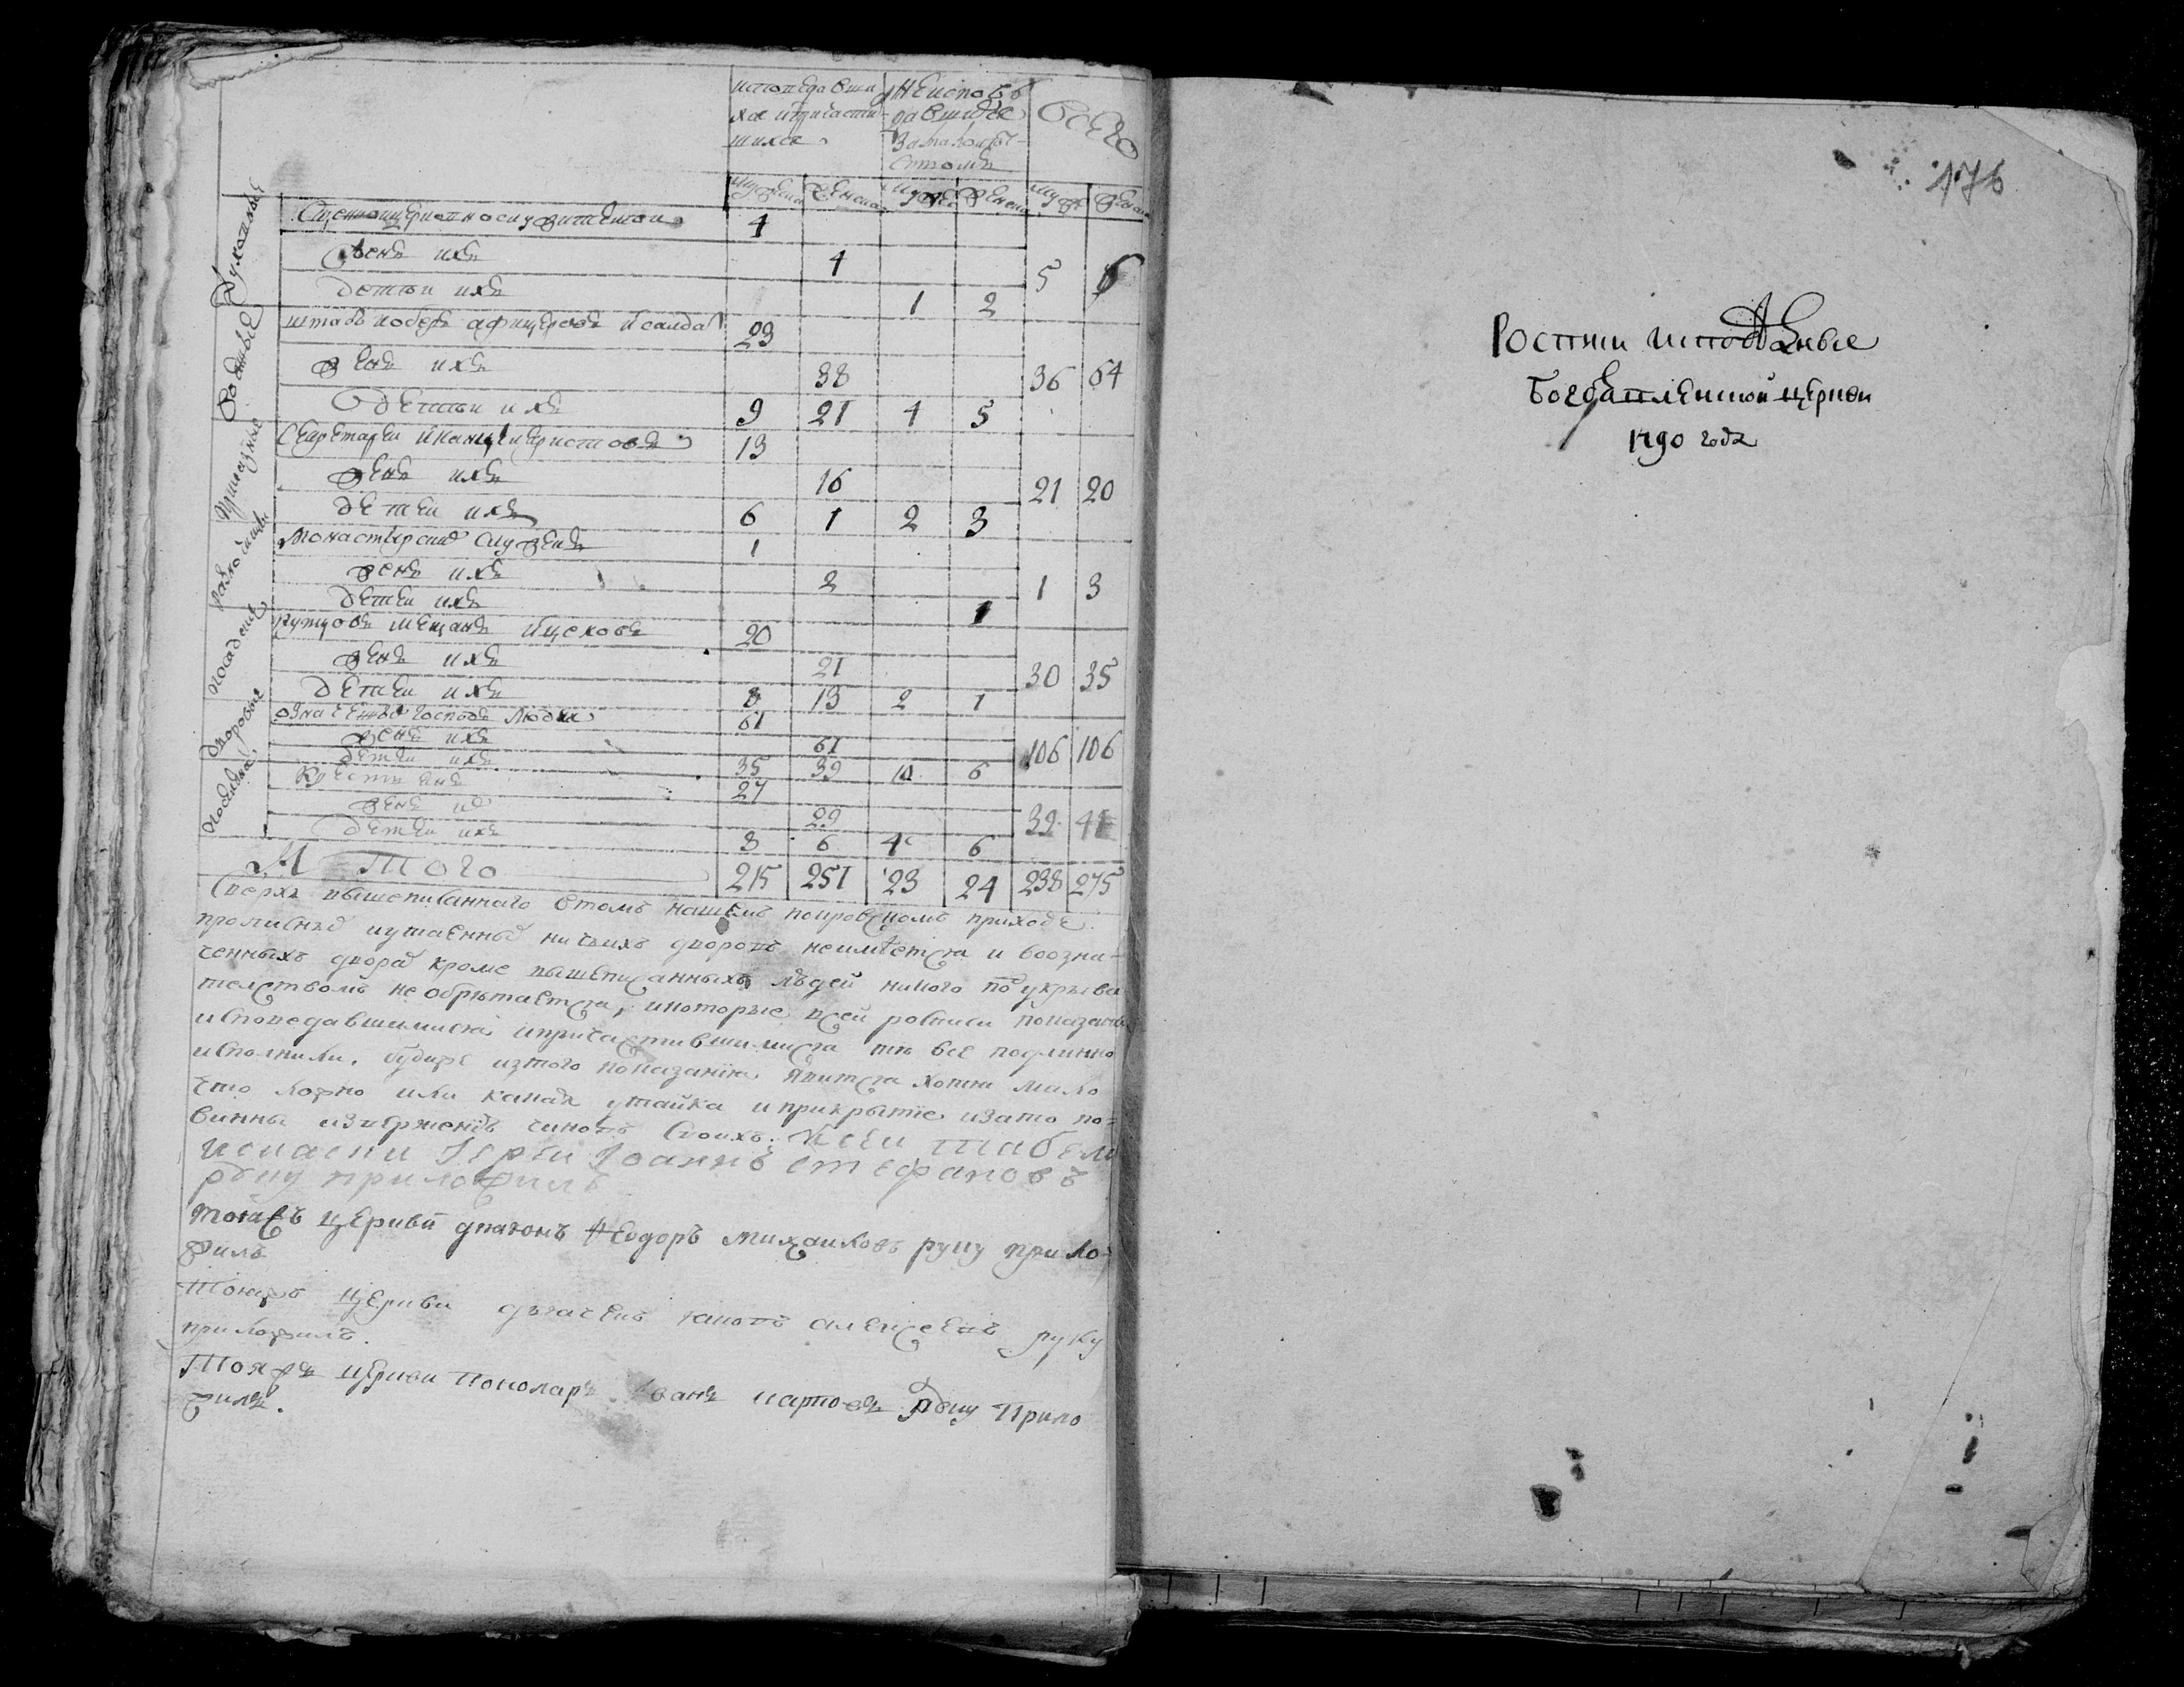 исповедавши
хся и причасти
шихся
неисповѣ
давшихся
за малолѣт
ством
всего
мужеска женска мужес женска мужес женска
Духовные
Священноцерковнослужителей 4
жен их 4 5 6
детей их 1 2
Военные
штаб и обер афицеров и салдат 23
жен их 38 36 64
детей их 9 21 4 5
Приказные
Секретарей и канцеляристов 13
жен их 16 21 20
детей их 6 1 2 3
Разночинцы
Монастырских служек 1
жен их 2 1 3
детей их 1
Посадские
Купцов мещан и цехов 20
жен их 21 30 35
детей их 8 13 2 1
Дворовые
означенных господ людей 61
жен их 61 106 106
детей их 35 39 10 6
Поселяне
Крестьян 27
жен их 29 39 41
детей их 8 6 4 6
Итого 215 251 23 24 238 275
Сверхъ вышеписаннаго в томъ нашемъ приходе
прописныхъ и утаенныхъ ничьихъ дворовъ неимѣется и в озна-
ченныхъ дворахъ кроме вышеписанныхъ людей никого по укрыва
телствомъ не обрѣтается, и которые в сей росписи показаны
исповедавшимися и причастившимися тѣ все подлинно
исполнили. будеже из того показания явится хотя мало
что ложно или какая утайка и прикрытие и за то по-
винны извержению чиновъ своихъ. К сей табели
Іерей Іоаннъ стефановъ
руку приложилъ
тояжъ церкви диаконъ Ѳеодоръ михаиловъ руку прило-
жилъ
Тояжъ церкви дьячекъ яковъ алексеевъ руку
приложилъ.
Тояжъ церкви пономарь Иванъ карповъ руку прило
жилъ.
176
Росписи исповедные
Богоявленской церкви
1790 года